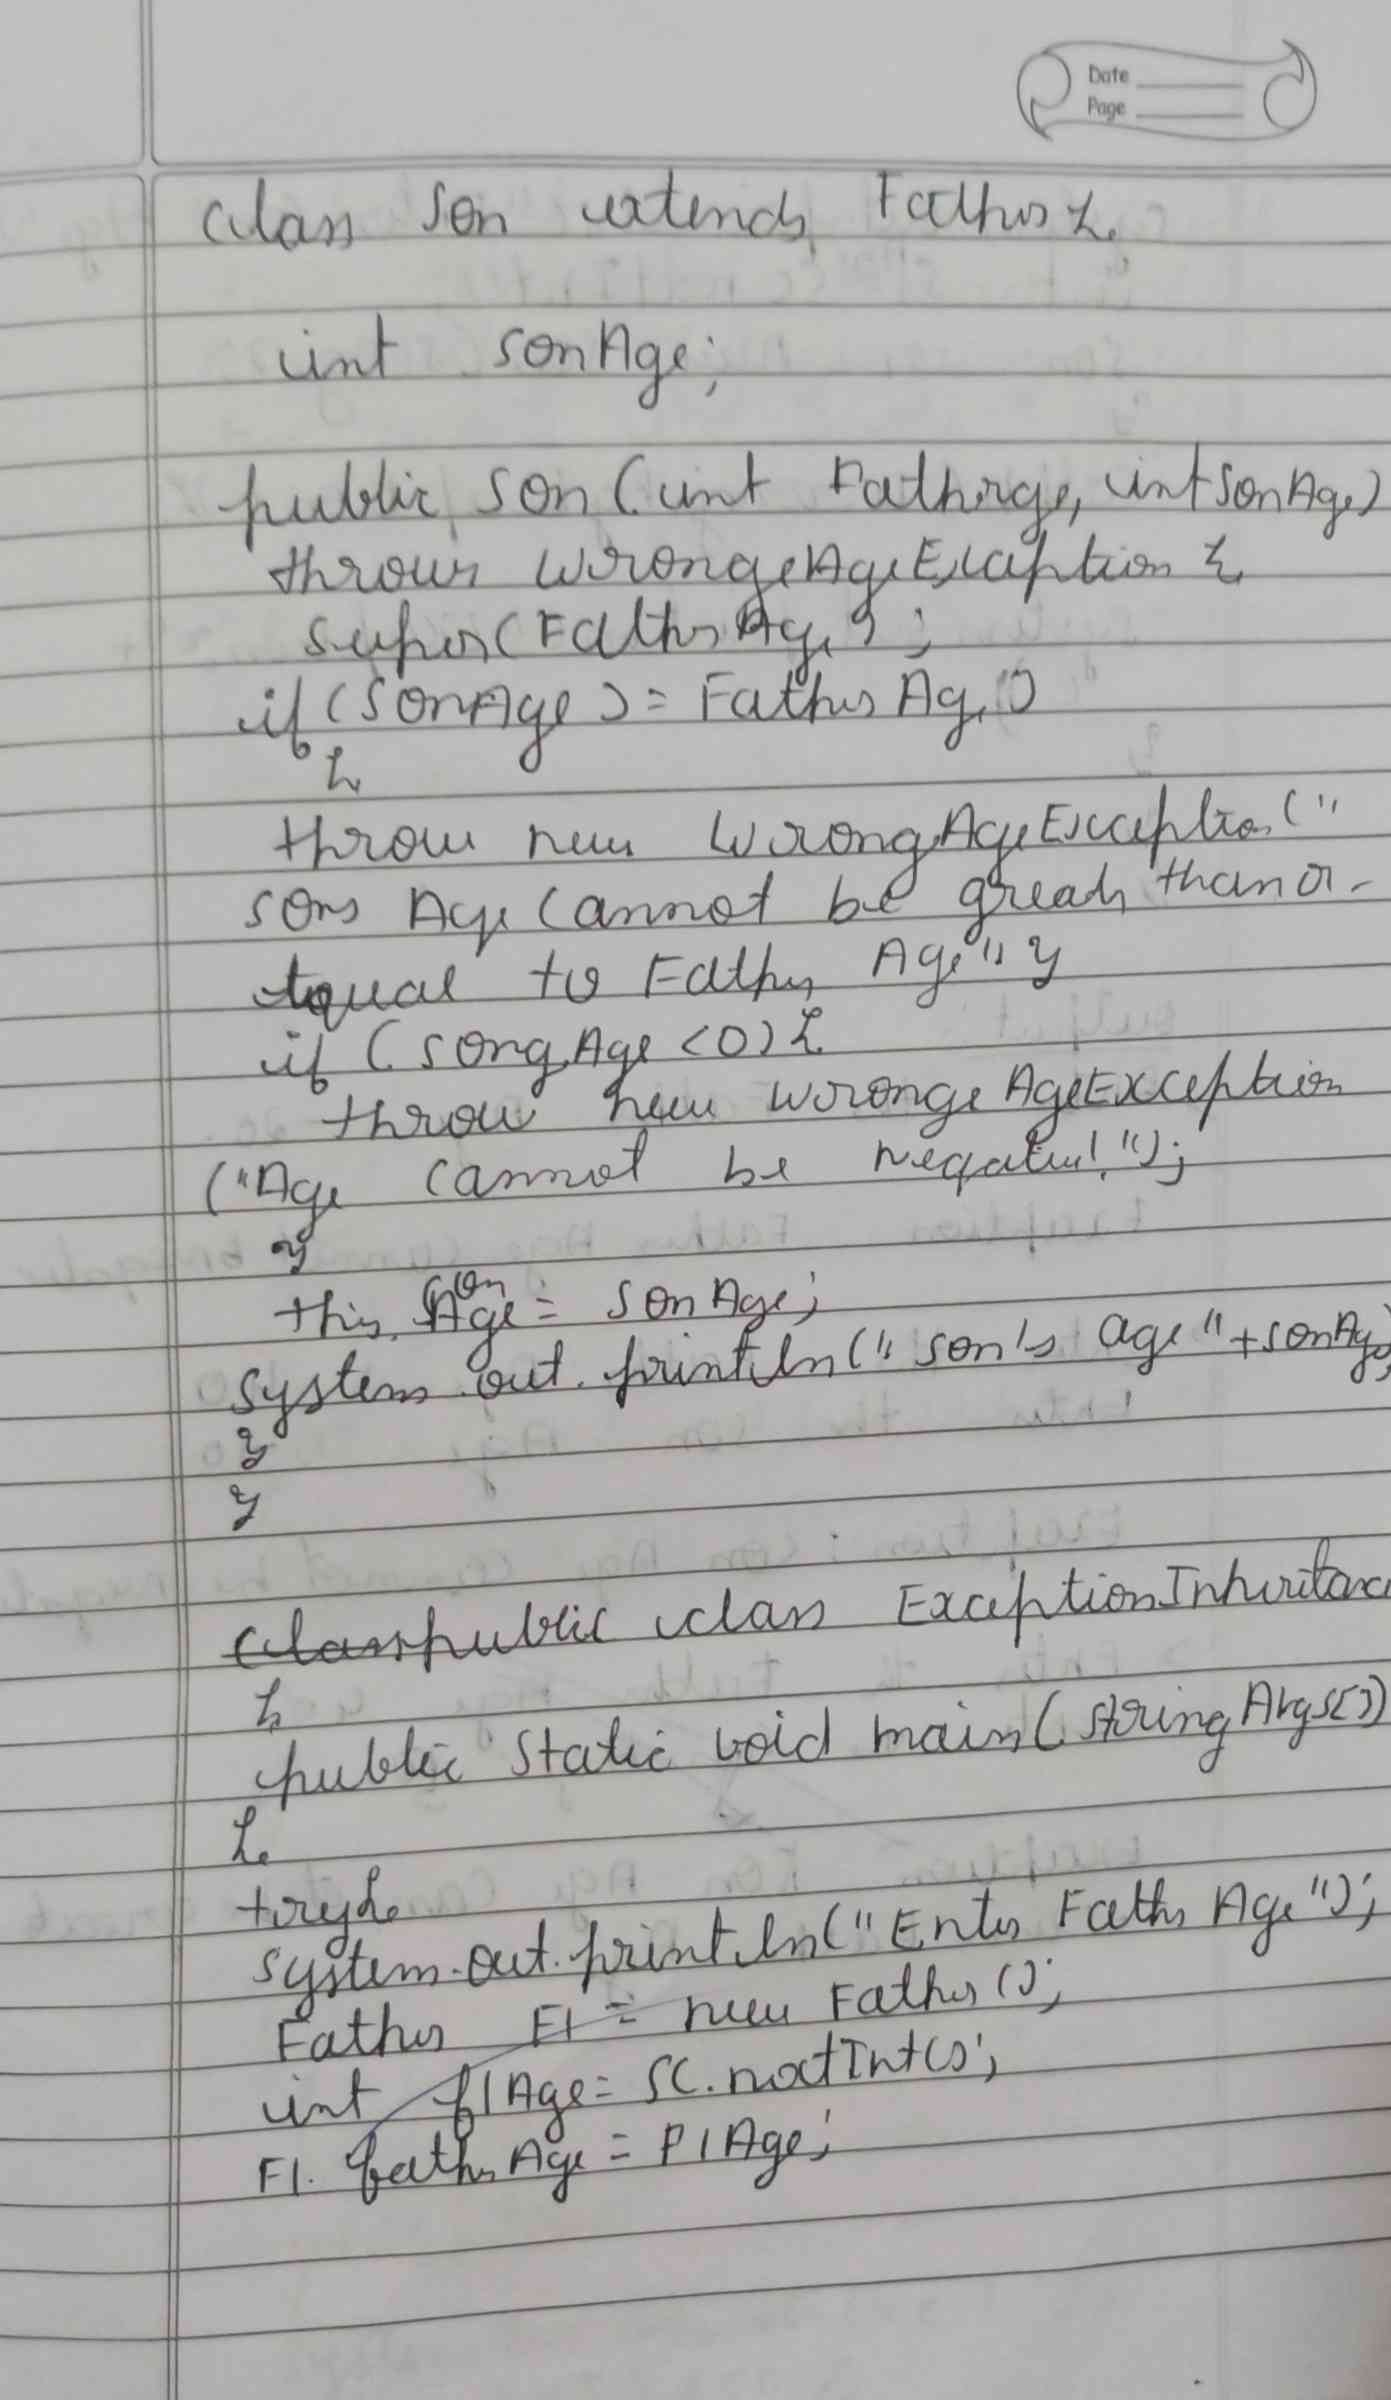 Date
Page
class Son extends Father {
int sonAge;
public son (int Fatherage, int SonAge)
throws WrongeAgeException {
super(FatherAge);
if (SonAge >= FatherAge)
{
throw new WrongAgeException("
sons Age cannot be greater than or
equal to Father Age" }
if (songAge <0) {
throw new wrongeAgeException
("Age cannot be negative!");
}
this.sonAge = sonAge;
System.out.println(" son's age "+sonAge)
}
}
public class ExceptionInheritance
{
public static void main(String Args[])
{
try{
System.out.println("Enter Father Age");
Father F1 = new Father();
int f1Age = SC.nextInt();
F1.fatherAge = F1Age;